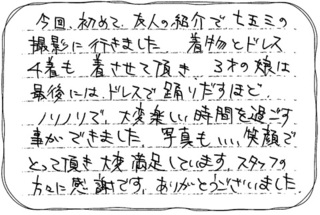 今回、初めて、友人の紹介で七五三の
撮影に行きました。 着物とドレス
4着も 着させて頂き、3才の娘は
最後には、ドレスで踊りだすほど、
ノリノリで、大変楽しい時間を過ごす
事ができました。写真も、いい笑顔で
とって頂き大変満足しています。スタッフの
方々に感謝です。ありがとうございました。